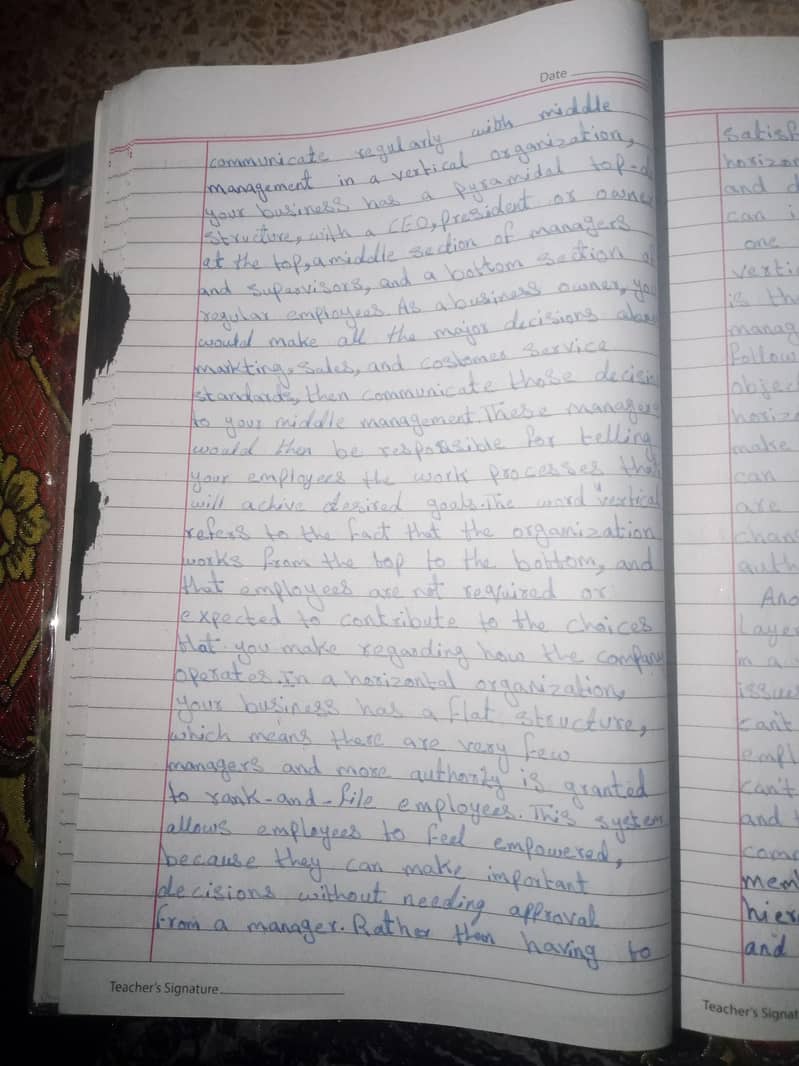 Date
communicate regularly with middle
management in a vertical organization,
your business has a pyramidal top-d
structure, with a CEO, president or owner
at the top, a middle section of managers
and supervisors, and a bottom section of
regular employees. As a business owner, you
would make all the major decisions abou
markting, sales, and costomer service
standards, then communicate those decisi
to your middle management. These managers
would then be responsible for telling
your employees the work processes that
will achive desired goals. The word "vertical
refers to the fact that the organization
works from the top to the bottom, and
that employees are not required or
expected to contribute to the choices
that you make regarding how the company
operates. In a horizontal organization,
your business has a flat structure,
which means there are very few
managers and more authority is granted
to rank-and-file employees. This system
allows employees to feel empowered,
because they can make important
decisions without needing approval
from a manager. Rather than having to
Teacher's Signature
satisf
horizon
and d
can i
one
vertic
is th
manag
follow
object
horizo
make
can
are
chan
auth
Ano
Layer
in a
issue
can't
empl
can't
and t
comm
mem
hier
and
Teacher's Signat